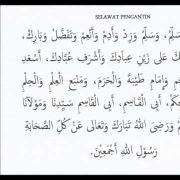 SELAWAT PENGANTIN
وَسَلِّمْ، وَسَلِّمْ وَزِدْ وَأَدِمْ وَأَنْعِمْ وَتَفَضَّلْ وَبَارِكْ،
كَ عَلَى زَيْنِ عِبَادِكَ وَأَشْرَفِ عُبَّادِكَ، أَسْعَدِ
وَإِمَامِ طَيْبَةَ وَالْحَرَمِ، وَمَنْبَعِ الْعِلْمِ وَالْحِلْمِ
كَمِ، أَبِي الْقَاسِمِ، أَبِي الْقَاسِمِ سَيِّدِنَا وَمَوْلَانَا
وَرَضِيَ اللهُ تَبَارَكَ وَتَعَالَى عَنْ كُلِّ الصَّحَابَةِ
رَسُوْلِ اللهِ أَجْمَعِيْنَ.